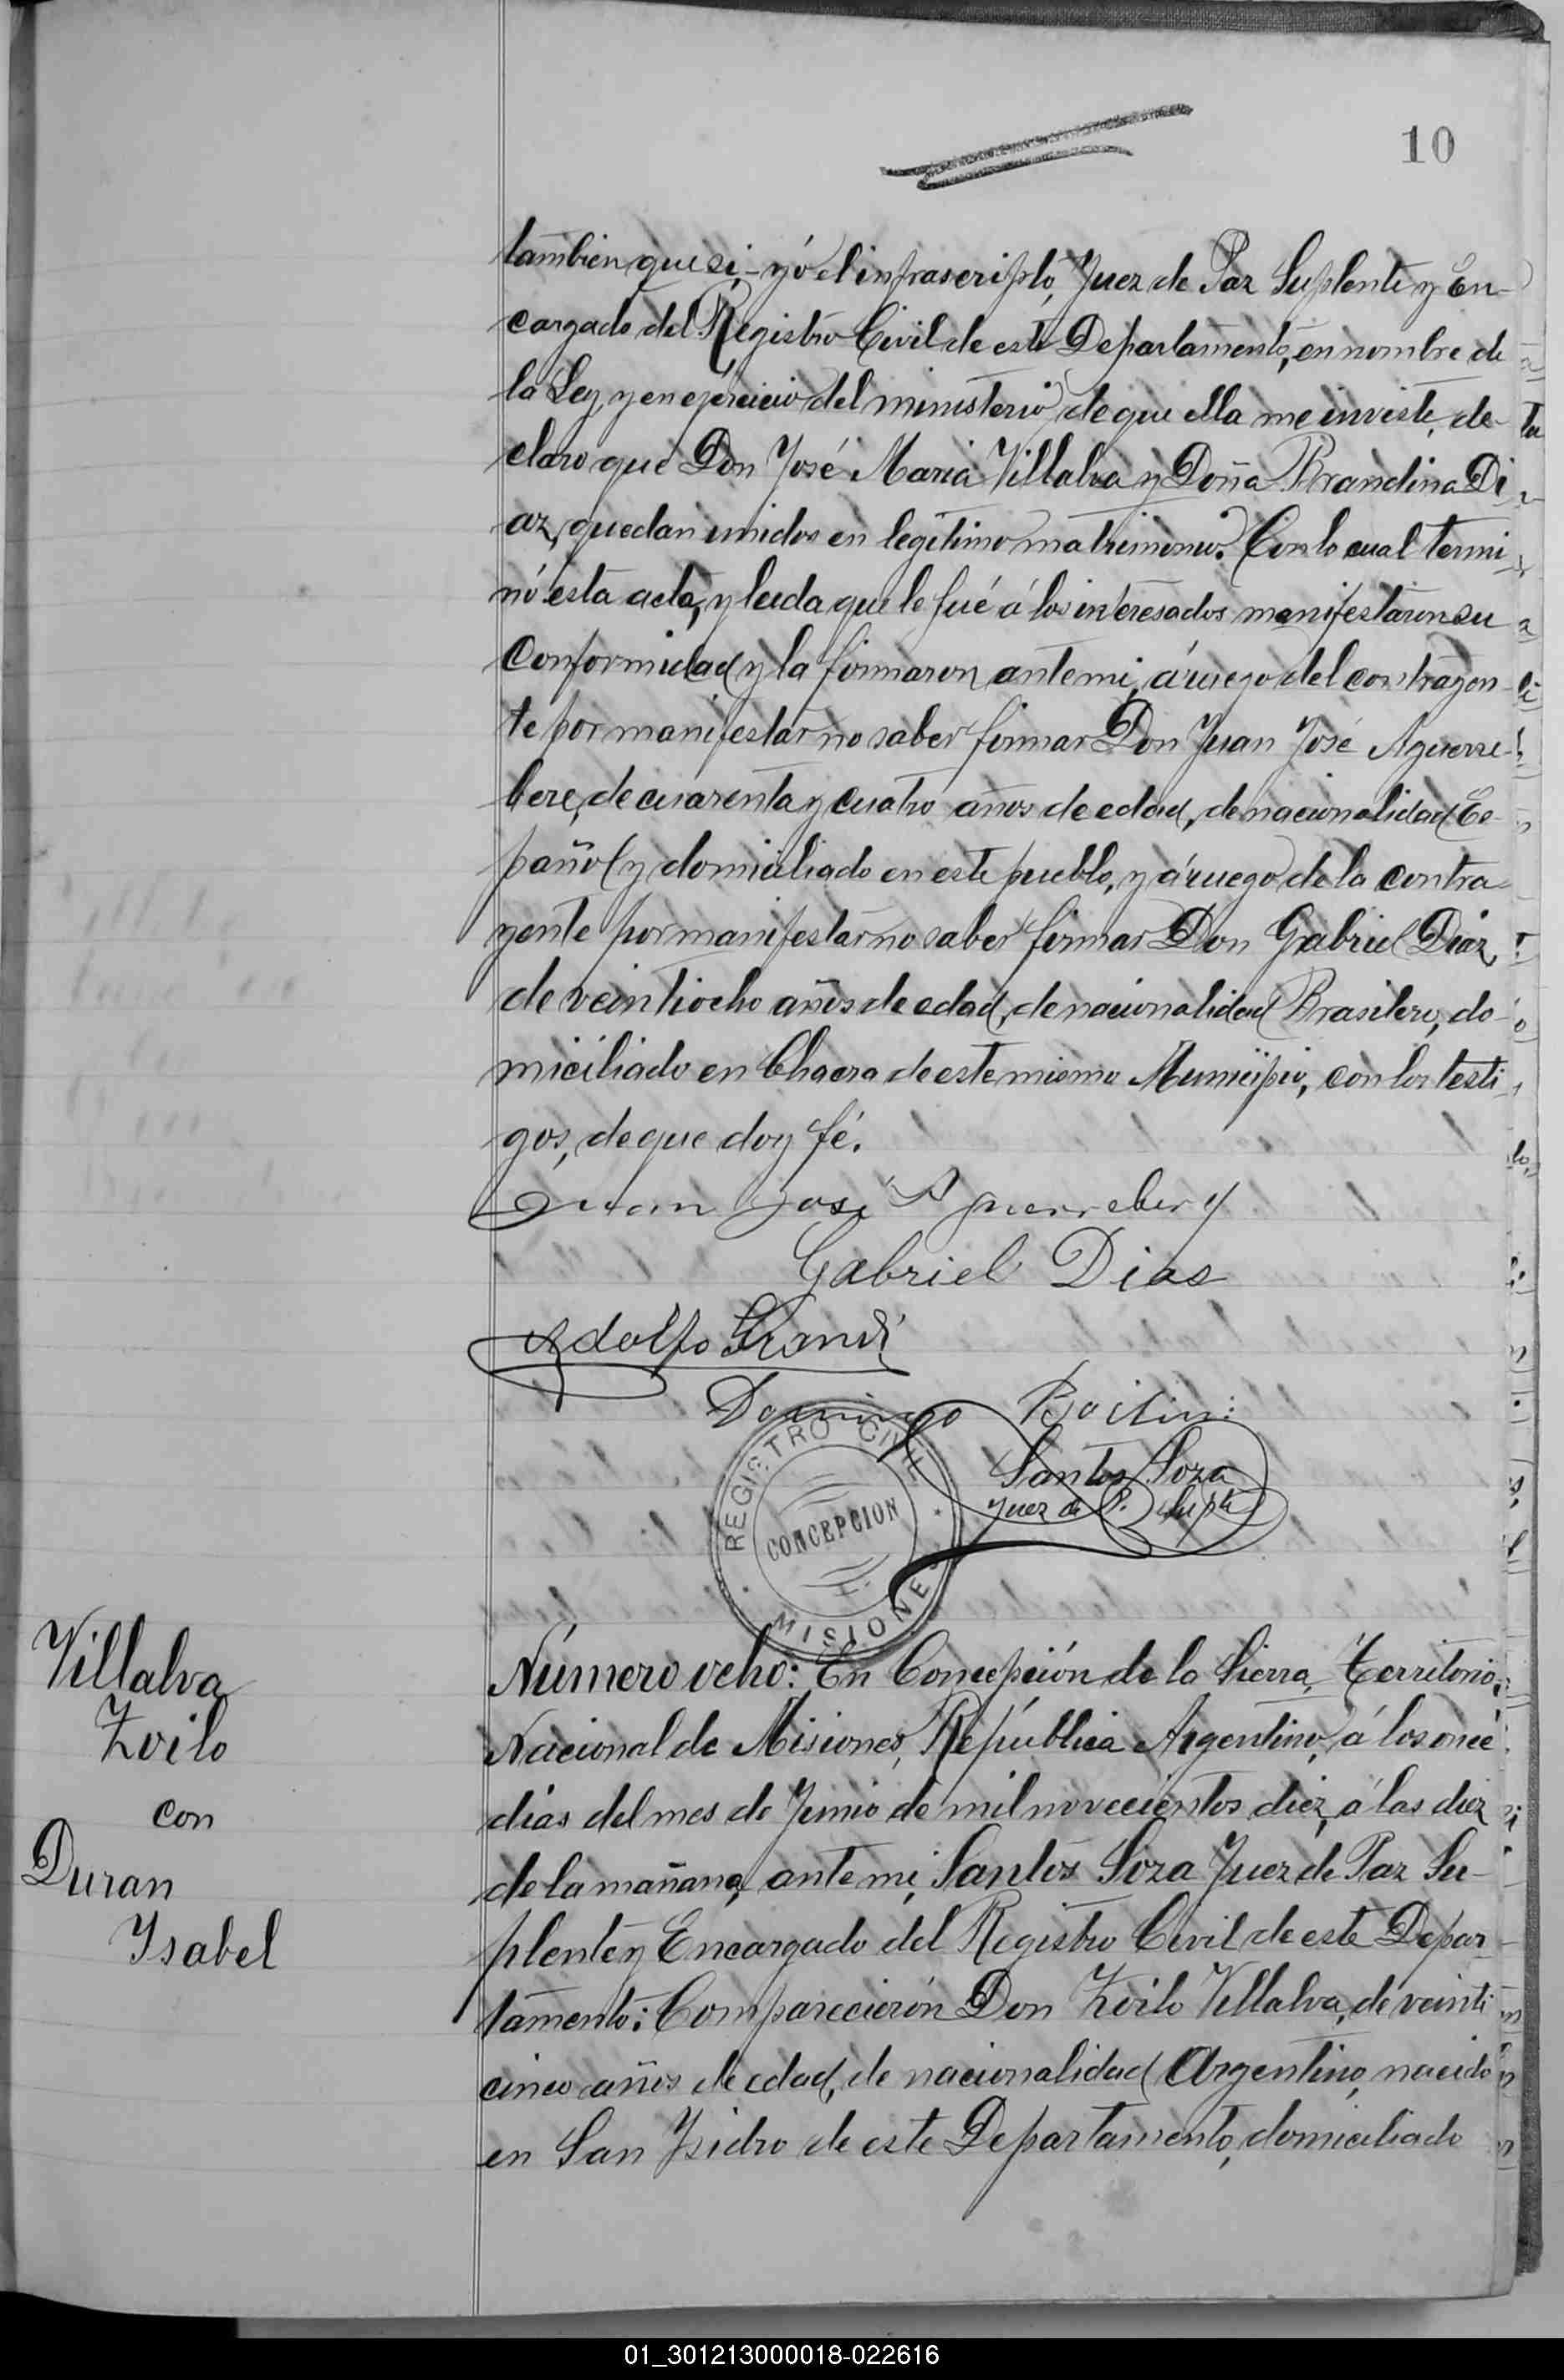 10
tambien que si, - yó el infrascripto, Juez de Paz Suplente y En-
cargado del Registro Civil de este Departamento, en nombre de
la Ley, y en ejercicio del ministerio de que ella me inviste, de-
claro que Don José Maria Villalva y Doña Brandina Di
az, quedan unidos en legítimo matrimonio. Con lo cual termi
nó esta acta, y leida que le fué á los interesados manifestaron su
Conformidad y la firmaron ante mi, á ruego del contrayen-
te por manifestar no saber firmar Don Juan José Aguerre-
bere, de cuarenta y cuatro años de edad, de nacionalidad Es-
pañol y domiciliado en este pueblo, y á ruego de la contra
yente por manifestar no saber firmar Don Gabriel Diaz,
de veintiocho años de edad, de nacionalidad Brasilero, do-
miciliado en Chacra de este mismo Municipio, con los testi
gos, de que doy fé.
Juan José Aguerrebery
Gabriel Dias
Adolfo Grandi
Domingo
Santos Soza
Juez de P. Suplte
REGISTRO CIVIL
CONCEPCION
MISIONES
Villalva
Zoilo
con
Duran
Ysabel
Número ocho: En Concepción de la Sierra, Territorio
Nacional de Misiones, República Argentina, á los once
dias del mes de Junio de mil novecientos diez, á las diez
de la mañana, ante mi, Santos Soza Juez de Paz Su-
plente y Encargado del Registro Civil de este Depar-
tamento: Comparecierón Don Zoilo Villalva, de veinti
cinco años de edad, de nacionalidad Argentino, nacido
en San Ysidro de este Departamento, domiciliado
01_301213000018-022616